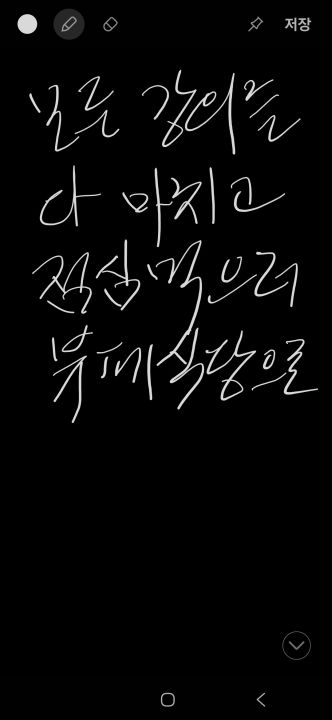 저장
모든 강의를
다 마치고
점심 먹으러
뷔페식당으로